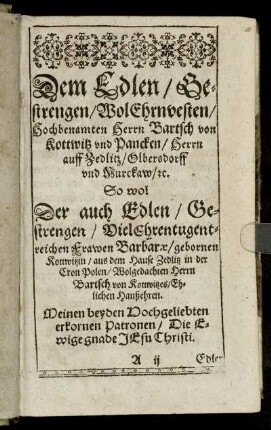 Dem Edlen / Ge-
strengen / WolEhrnvesten /
Hochbenamten Herrn Bartsch von
Kottwitz vnd Pancken / Herrn
auff Zedlitz / Olbersdorff
vnd Murckaw / ꝛc.
So wol
Der auch Edlen / Ge-
strengen / VielEhrentugent-
reichen Frawen Barbaræ / gebornen
Kottwitzin / aus dem Hause Zedlitz in der
Cron Polen / Wolgedachten Herrn
Bartsch von Kottwitzes / Eh-
lichen Haußehren.
Meinen beyden Hochgeliebten
erkornen Patronen / Die E-
wige gnade JEsu Christi.
A ij
Edler